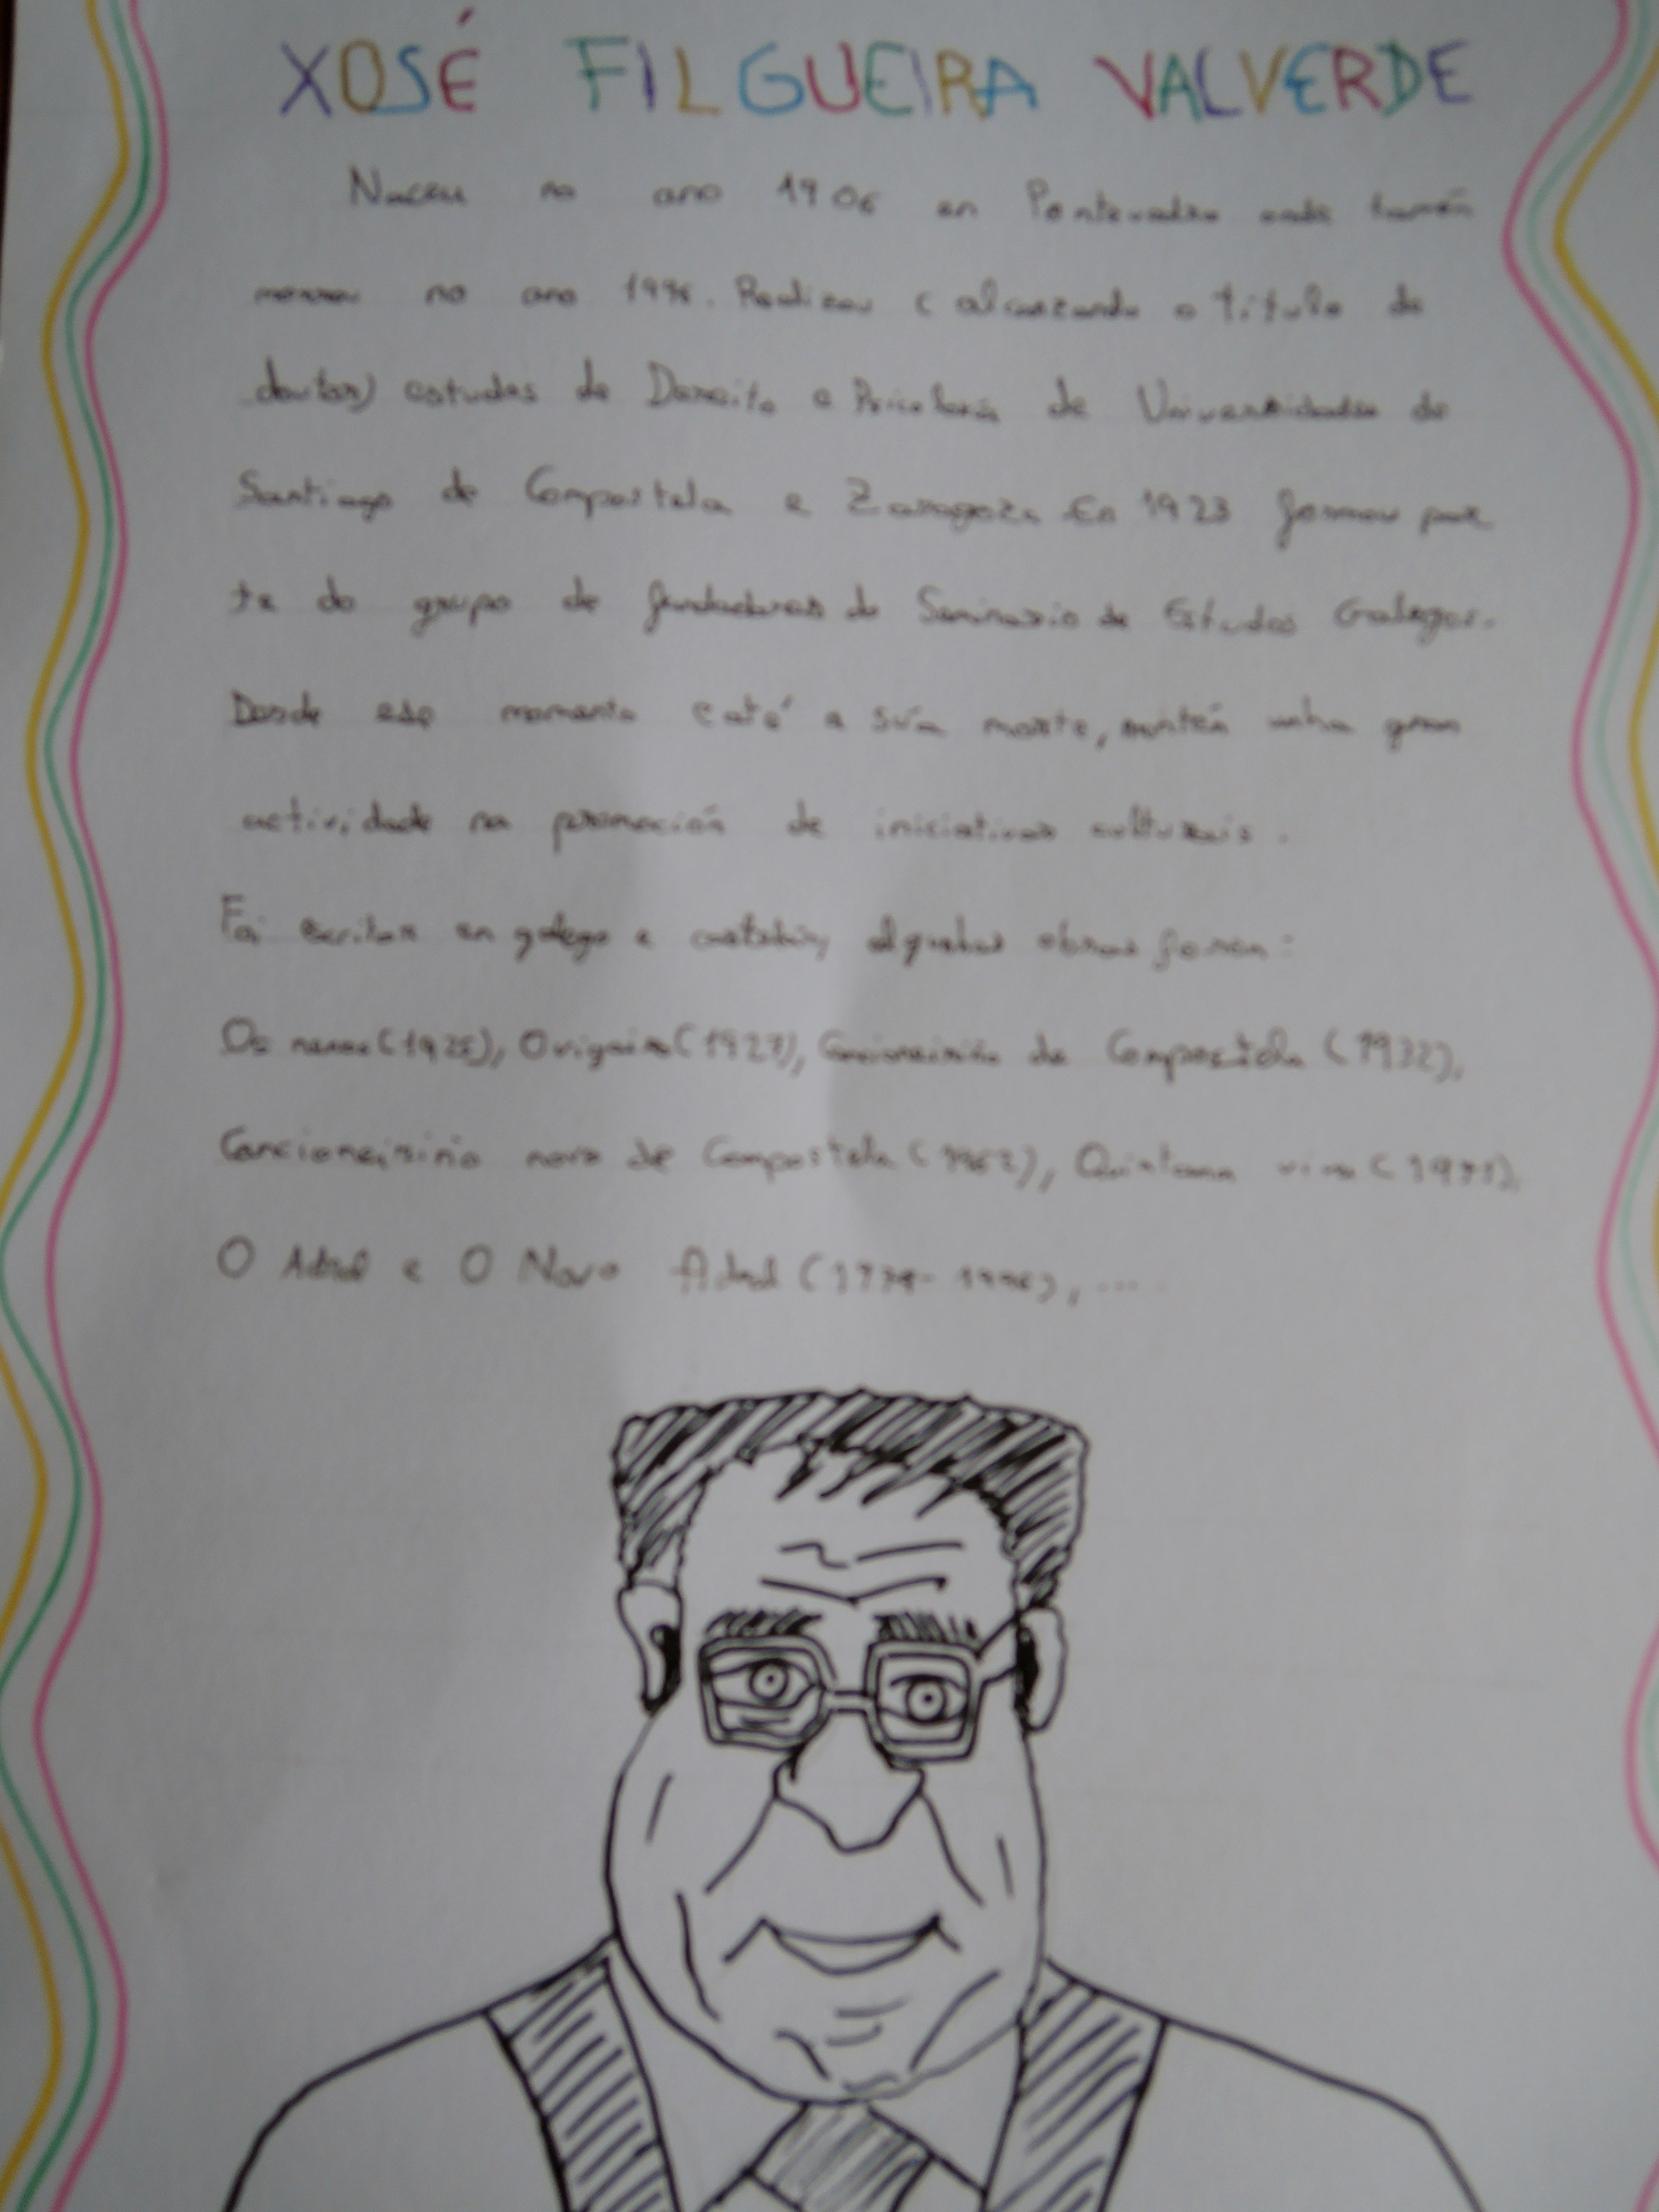 XOSÉ FILGUEIRA VALVERDE
Naceu no ano 1906 en Pontevedra onde tamén
morreu no ano 1996. Realizou (alcanzando o título de
doutor) estudos de Dereito e de Universidade de
Santiago de Compostela e Zaragoza. En 1923 formou par
te do grupo de fundadores do Seminario de Estudos Galegos.
Desde ese momento e até a súa morte, mantén unha gran
actividade na promoción de iniciativas culturais.
Foi escritor en galego e castelán, algunhas obras foron:
Os nenos (1925), (1927), Cancioneiriño de Compostela (1932),
Cancioneiriño novo de Compostela (1969), Quintana viva (1971),
O Adral e O Novo Adral (1979-1996), ...